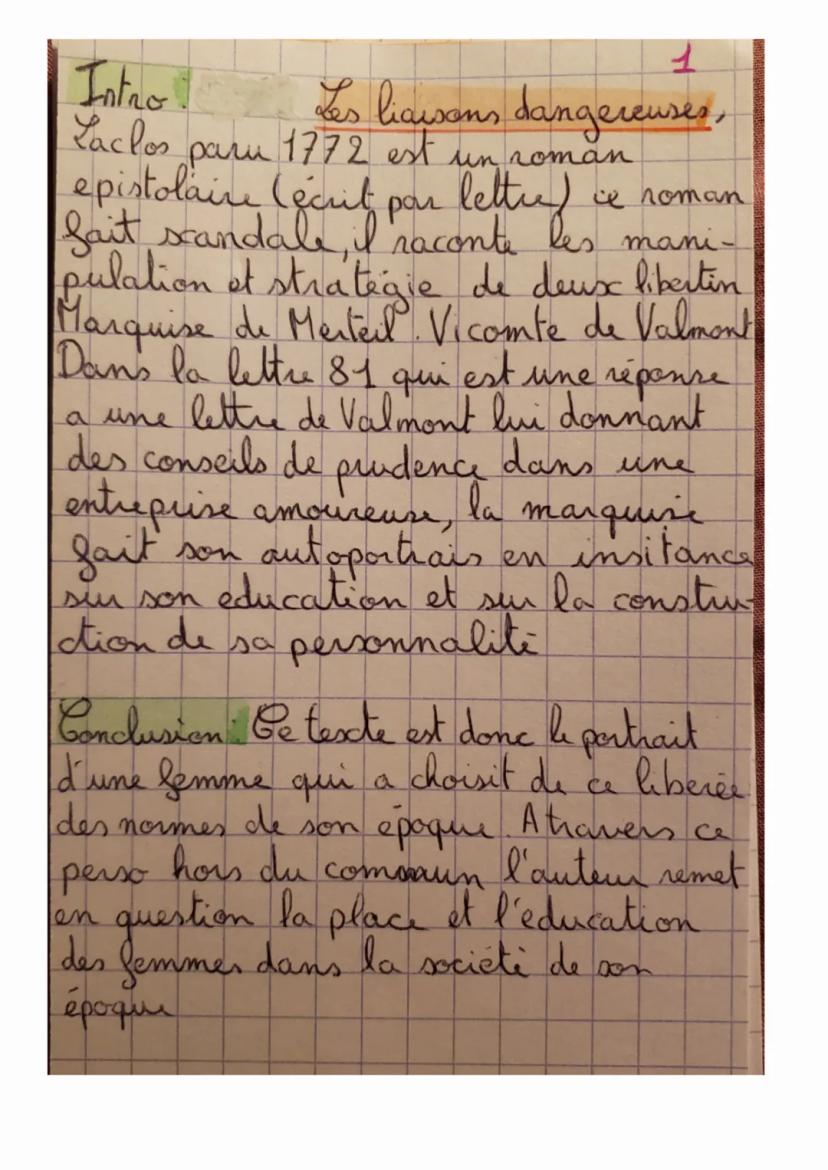 1
Intro : Les liaisons dangereuses,
Laclos paru 1772 est un roman
epistolaire (écrit par lettre) ce roman
fait scandale, il raconte les mani-
pulation et stratégie de deux libertin
Marquise de Merteil. Vicomte de Valmont
Dans la lettre 81 qui est une réponse
a une lettre de Valmont lui donnant
des conseils de prudence dans une
entreprise amoureuse, la marquise
fait son autoportrais en insitance
sur son education et sur la constru-
ction de sa personnalité
Conclusion : Ce texte est donc le portrait
d'une femme qui a choisit de ce liberée
des normes de son époque. A travers ce
perso hors du commun l'auteur remet
en question la place et l'éducation
des femmes dans la société de son
époque